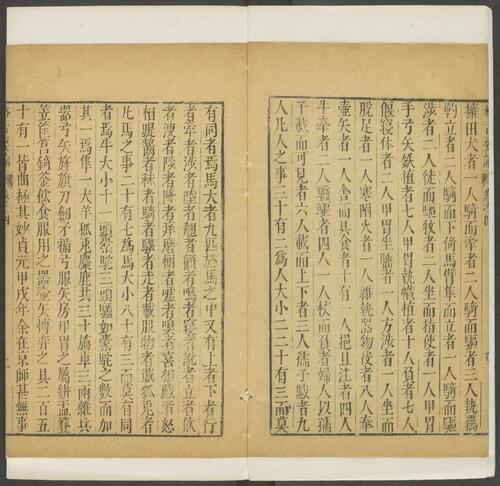 擁田犬者一人騎而牽者二人騎而驅者三人執羈
靮立者二人騎而下倚馬臂隼而立者一人騎而驅
涉者二人徒而驅牧者二人坐而指使者一人甲冑
手弓矢鈇鉞植者七人甲冑執幟植者十人負者七人
偃寢休者二人甲冑坐睡者一人方涉者一人坐而
脫足者一人寒附火者一人雜執器物役者八人奉
壺矢者一人舍而具食者十有一人挹且注者四人
牛牽者二人驢驅者四人一人杖而負者婦人以孺
子載而可見者六人載而上下者三人孺子戲者九
人凡人之事三十有二為人大小百二十有三而莫
有同者焉馬大者九匹於馬之中又有上者下者行
者牽者涉者陸者翹者顧者鳴者寢者訛者立者飲
者溲者陟者降者痒磨樹者噓者嗅者喜相戲者怒
相踶齧者秣者騎者驟者走者載服物者載狐兔者
凡馬之事二十有七為馬大小八十有三而莫有同
者焉牛大小十一頭橐駝三頭驢如橐駝之數而加
其一焉隼一犬羊狐兔麋鹿共三十旃車三兩雜兵
器弓矢旌旗刀劍矛楯弓服矢房甲冑之屬缾盂簦
笠筐筥錡釜飲食服用之器壺矢博弈之具二百五
十有一皆曲極其妙貞元甲戌年余在京師甚無事